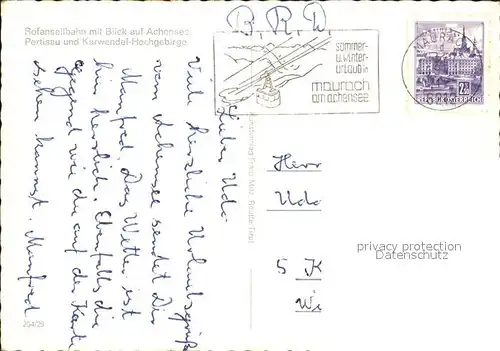 Rofanseilbahn mit Blick auf Achensee
Pertisau und Karwendel-Hochgebirge.
B.R.D.
sommer-
u.winter-
urlaub in
maurach
am achensee
MAURACH
2S
REPUBLIK ÖSTERREICH
Lieber Udo
Viele herzliche Urlaubsgrüße
vom Achensee sendet Dir
Manfred. Das Wetter ist
hier herrlich. Ebenfalls die
Gegend wie du auf der Karte
sehen kannst. Manfred
Herr
Udo
5 K
We
privacy protection
Datenschutz
264/29